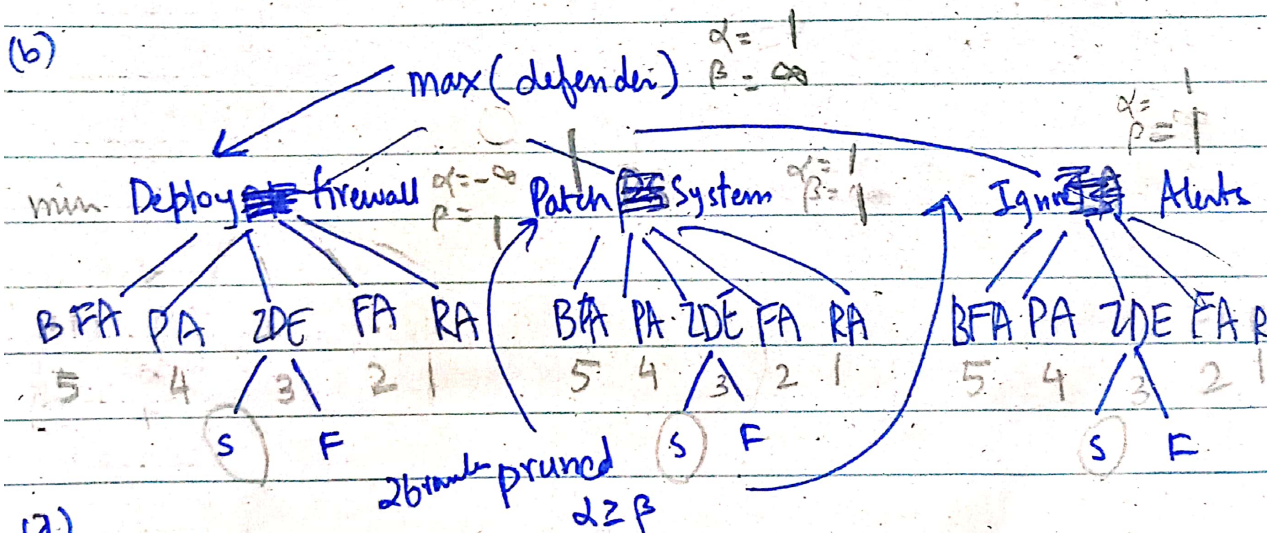 (b)
max (defender) α = 1
β = ∞
min Deploy firewall α = -∞
β = 1
Patch System α = 1
β = 1
Ignore Alerts α = 1
β = 1
BFA PA ZDE FA RA BFA PA ZDE FA RA BFA PA ZDE FA R
5 4 3 2 1 5 4 3 2 1 5 4 3 2 1
S F S F S F
2 branch pruned
α ≥ β